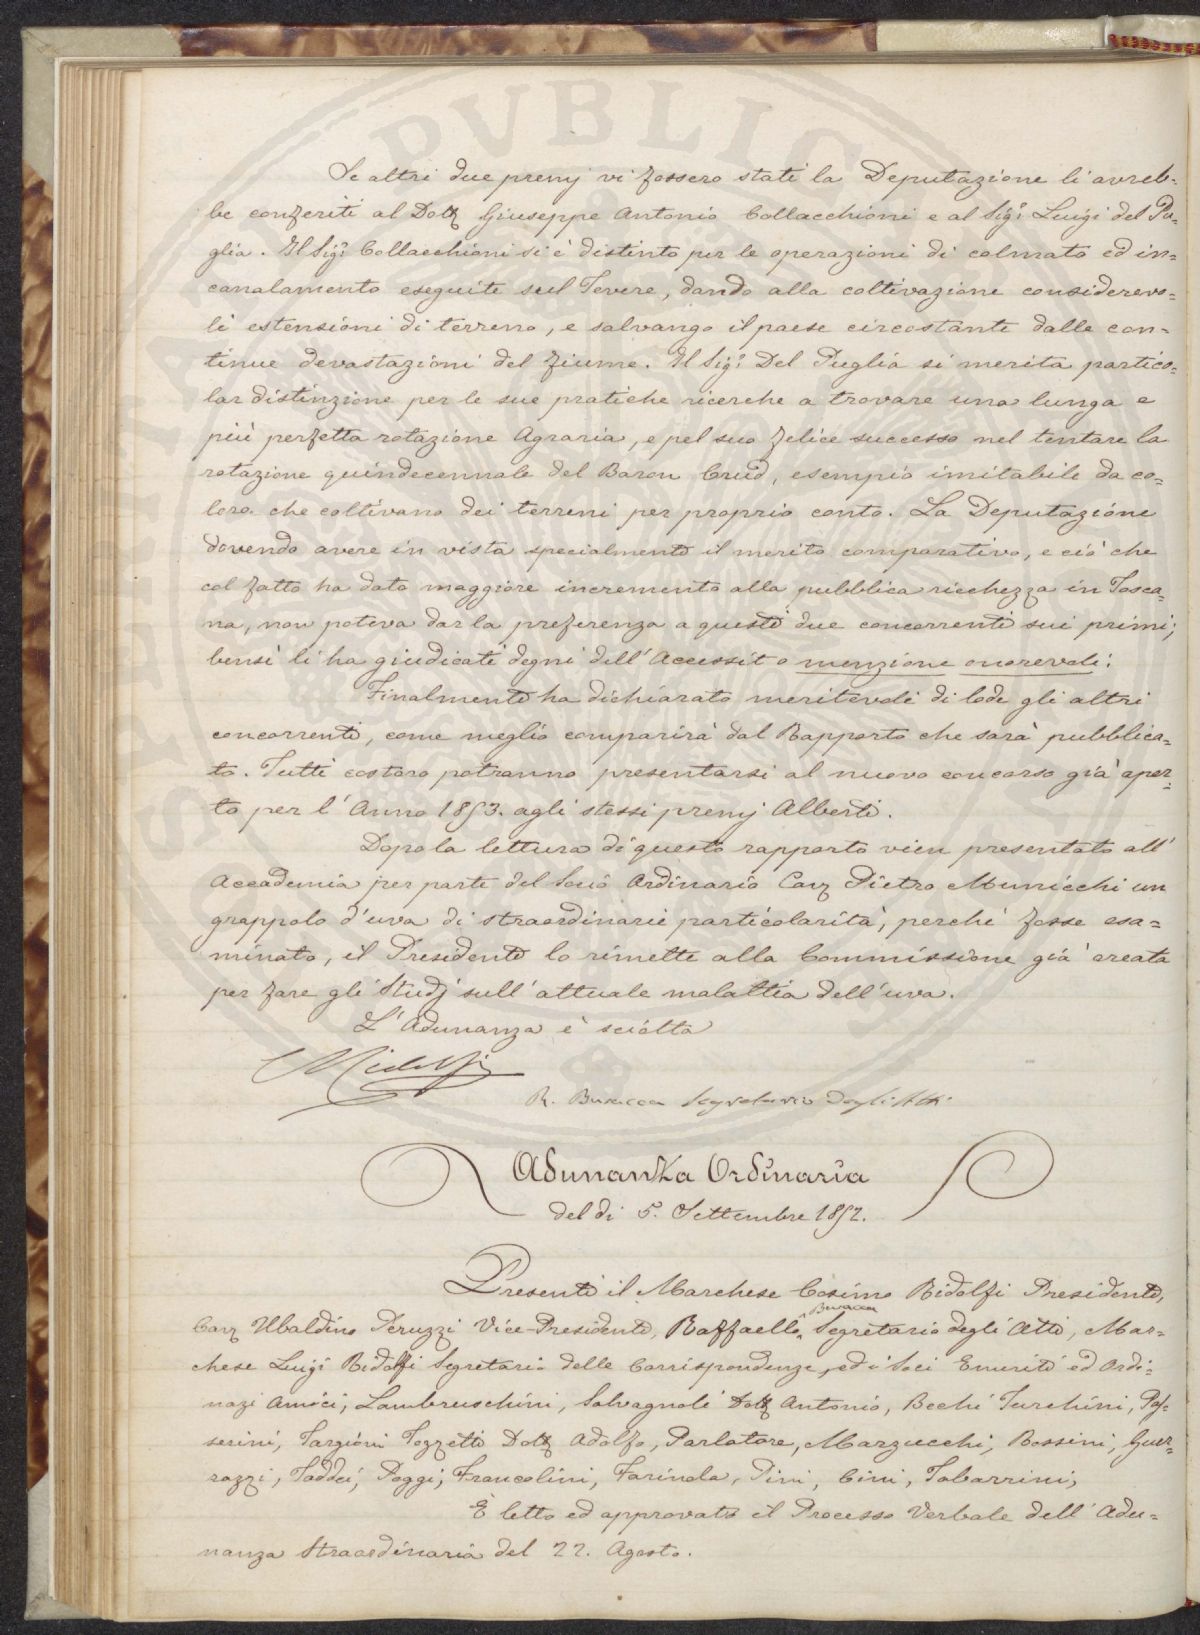 Se altri due premj vi fossero stati la Deputazione li avreb=
be conferiti al Dott Giuseppe Antonio Collacchioni e al Sigr Luigi del Pu=
glia. Il Sigr Collacchioni si è distinto per le operazioni di colmata ed in=
canalamento eseguite sul Tevere, dando alla coltivazione considerevo=
li estensioni di terreno, e salvango il paese circostante dalle con=
tinue devastazioni del fiume. Il Sigr Del Puglia si merita partico=
lar distinzione per le sue pratiche ricerche a trovare una lunga e
più perfetta rotazione Agraria, e pel suo felice successo nel tentare la
rotazione quindecennale del Baron Crud, esempio imitabile da co=
loro che coltivano dei terreni per proprio conto. La Deputazione
dovendo avere in vista specialmente il merito comparativo, e ciò che
col fatto ha dato maggiore incremento alla pubblica ricchezza in Tosca=
na, non poteva dar la preferenza a questi due concorrenti sui primi;
bensì li ha giudicati degni dell'Accessit o menzione onorevole:
Finalmente ha dichiarato meritevoli di lode gli altri
concorrenti, come meglio comparirà dal Rapporto che sarà pubblica=
to. Tutti costoro potranno presentarsi al nuovo concorso già aper=
to per l'Anno 1853. agli stessi premj Alberti.
Dopo la lettura di questo rapporto vien presentato all'
Accademia per parte del Socio Ordinario Cav Pietro Municchi un
grappolo d'uva di straordinarie particolarità, perchè fosse esa=
minato, il Presidente lo rimette alla Commissione già creata
per fare gli Studj sull'attuale malattia dell'uva.
L'Adunanza è sciolta
CRidolfi
R. Busacca Segretario degli Atti
Adunanza Ordinaria
del dì 5. Settembre 1852.
Presenti il Marchese Cosimo Ridolfi Presidente,
Cav Ubaldino Peruzzi Vice-Presidente, Raffaello Busacca Segretario degli Atti, Mar=
chese Luigi Ridolfi Segretario delle Corrispondenze, ed i Soci Emeriti ed Ordi=
nazi Amici, Lambruschini, Salvagnoli Dott Antonio, Bechi Turchini, Pas=
serini, Targioni Tozzetti Dott Adolfo, Parlatore, Marzucchi, Bossini, Guer=
razzi, Taddei, Poggi, Francolini, Farinola, Pini, Cini, Tabarrini;
È letto ed approvato il Processo Verbale dell'Adu=
nanza Straordinaria del 22. Agosto.